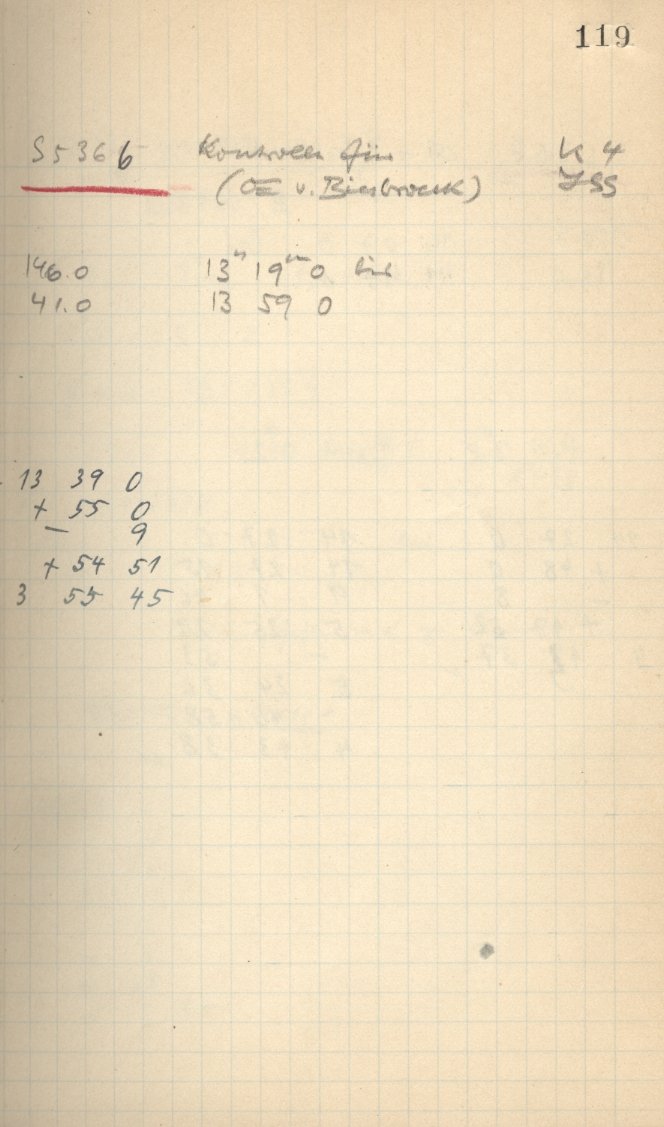 119
S5366 Kontrolle für K 4
(Œ v. Biesbroeck) JSS
146.0 13ʰ 19ᵐ 0
41.0 13 59 0
13 39 0
+ 55 0
− 9
+ 54 51
3 55 45